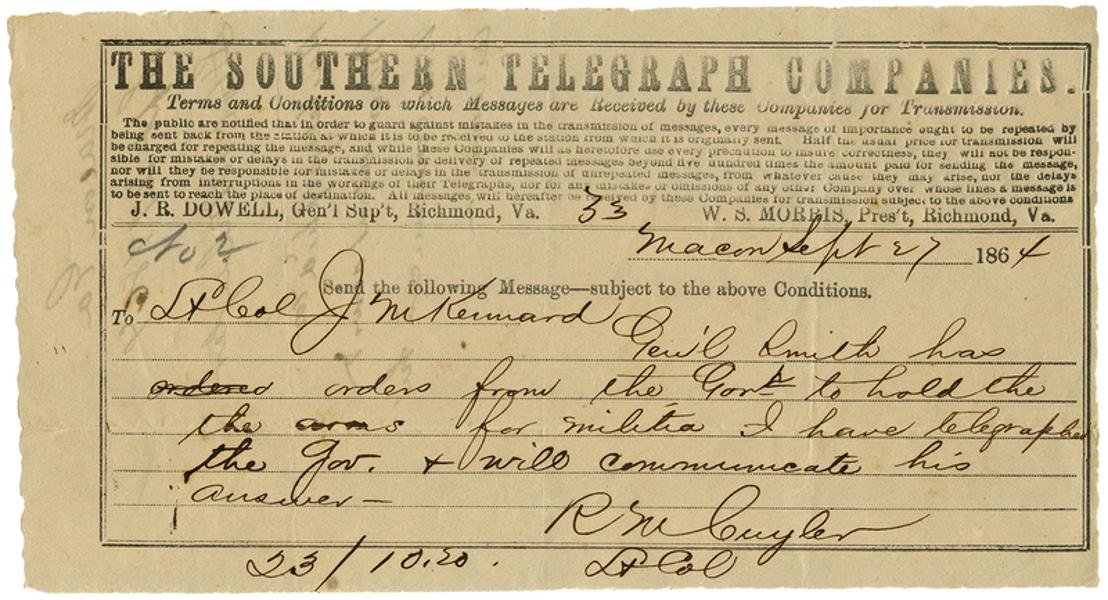 THE SOUTHERN TELEGRAPH COMPANIES.
Terms and Conditions on which Messages are Received by these Companies for Transmission.
The public are notified that in order to guard against mistakes in the transmission of messages, every message of importance ought to be repeated by
being sent back from the station at which it is to be received to the station from which it is originally sent. Half the usual price for transmission will
be charged for repeating the message, and while these Companies will as heretofore use every precaution to insure correctness, they will not be respon-
sible for mistakes or delays in the transmission or delivery of repeated messages beyond five hundred times the amount paid for sending the message,
nor will they be responsible for mistakes or delays in the transmission of unrepeated messages, from whatever cause they may arise, nor the delays
arising from interruptions in the workings of their Telegraphs, nor for any mistakes or omissions of any other Company over whose lines a message is
to be sent to reach the place of destination. All messages will hereafter be received by these Companies for transmission subject to the above conditions
J. R. DOWELL, Gen'l Sup't, Richmond, Va. 33 W. S. MORRIS, Pres't, Richmond, Va.
No 2
Macon Sept 27 1864
Send the following Message—subject to the above Conditions.
To Lt Col J M Kennard
Gen'l Smith has
ordered orders from the Govr to hold the
the arms for militia I have telegraphed
the Gov. & will communicate his
answer —
R M Cuyler
Lt Col
23/10.20.